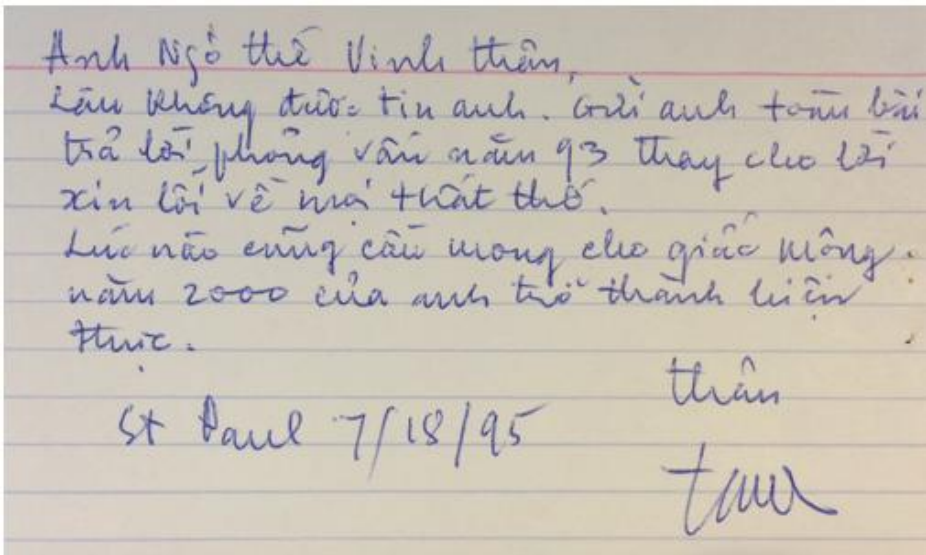 Anh Ngô thế Vinh thân,
Lâu không được tin anh. Gửi anh toàn bài
trả lời phỏng vấn năm 93 thay cho lời
xin lỗi về mọi thất thố.
Lúc nào cũng cầu mong cho giấc mộng
năm 2000 của anh trở thành hiện
thực.
thân
St Paul 7/18/95